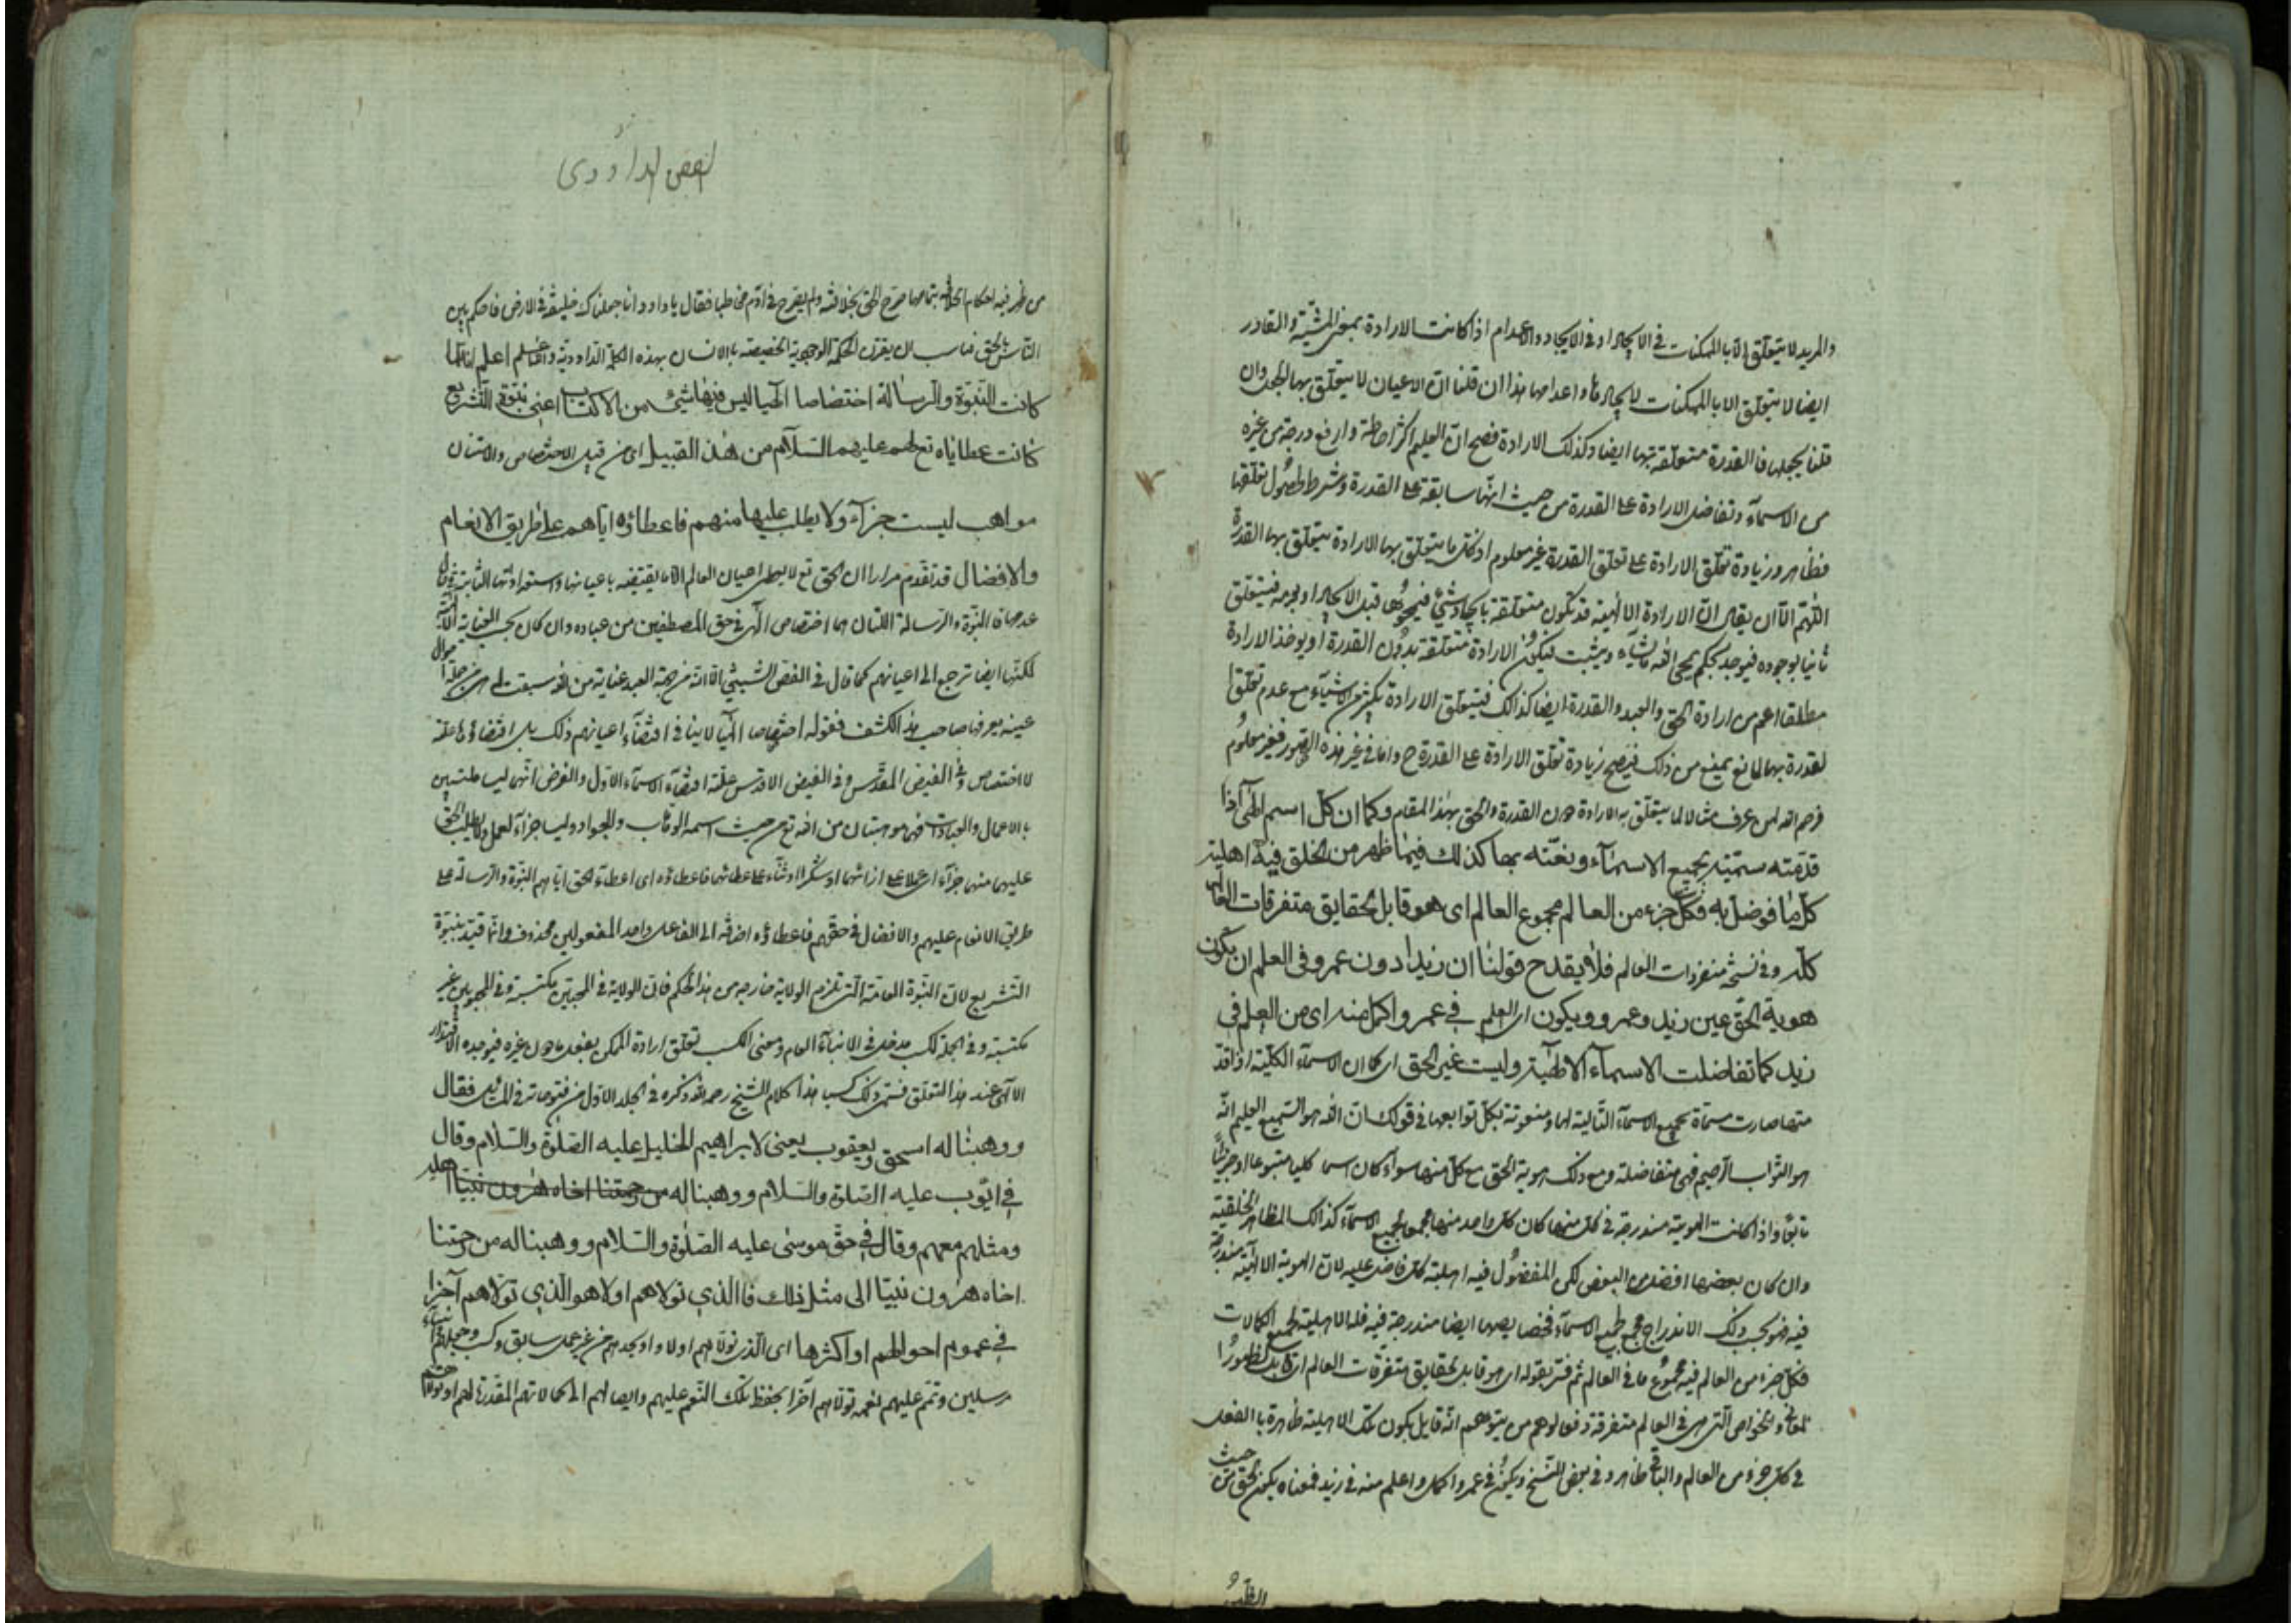 والمريد لا يتعلق الا بالممكنات في الايجاد او في الايجاد والاعدام اذا كانت الارادة بمعنى المشية والقادر
ايضا لا يتعلق الا بالممكنات لايجادها واعدامها هذا ان قلنا ان الاعيان لا يتعلق بها الجعل وان
قلنا بجعلها فالقدرة متعلقة بها ايضا وكذلك الارادة فصح ان العليم اكثر احاطة وارفع درجة من غيره
من الاسماء وتفاضل الارادة على القدرة من حيث انها سابقة على القدرة وشرط لحصول تعلقها
فظاهر وزيادة تعلق الارادة على تعلق القدرة غير معلوم اذ كل ما يتعلق بها الارادة يتعلق بها القدرة
اللهم الا ان يقال ان الارادة الالهية قد تكون متعلقة بايجاد شئ فيمحوها قبل الايجاد او بعدمه فيتعلق
ثانيا بوجوده فيوجد بحكم يمحو الله ما يشاء ويثبت فيكون الارادة متعلقة بدون القدرة او يوخذ الارادة
مطلقا اعم من ارادة الحق والعبد والقدرة ايضا كذالك فيتعلق الارادة بكثير من الاشياء مع عدم تعلق
لقدرة بها لمانع يمنع من ذلك فيصح زيادة تعلق الارادة على القدرة ح واما في غير هذه الصور فغير معلوم
فرحم الله لمن عرف مثالا لما يتعلق به الارادة دون القدرة والحق بهذا المقام وكما ان كل اسم الهى اذا
قدمته سميته بجميع الاسماء ونعته بها كذلك فيما ظهر من الخلق فيه اهلية
كل ما فوضل به فكل جزء من العالم مجموع العالم اى هو قابل لحقايق متفرقات العالم
كله وفي نسخة منفردات العالم فلا يقدح قولنا ان زيدا دون عمرو في العلم ان يكون
هوية الحق عين زيد وعمرو ويكون اى العلم في عمرو اكمل منه اى من العلم في
زيد كما تفاضلت الاسماء الالهية وليست غير الحق اى كما ان الاسماء الكلية اذا قد
متها صارت مسماة بجميع الاسماء التالية لها ومنعوتة بكل توابعها في قولك ان الله هو السميع العليم انه
هو التواب الرحيم فهى متفاضلة ومع ذلك هوية الحق مع كل منها سواء كان اسما كليا متبوعا او جزئيا
تابعا واذا كانت الهوية مندرجة في كل منها كان كل واحد منها مجمعا لجميع الاسماء كذالك المظاهر الخلقية
وان كان بعضها افضل من البعض لكن المفضول فيه اهلية كل فاضل عليه لان الهوية الالهية مندرجة
فيه فهو بحسب ذلك الاندراج مجمع لجميع الاسماء فخصايصها ايضا مندرجة فيه فله الاهلية لجميع الكمالات
فكل جزء من العالم فيه مجموع ما في العالم ثم فسر بقوله اى هو قابل لحقايق متفرقات العالم اى قابل لظهور
المعاني والخواص التى هى في العالم متفرقة دفعا لوهم من يتوهم انه قايل بكون تلك الاهلية ظاهرة بالفعل
في كل جزء من العالم والباقي ظاهر وفي بعض النسخ ويكون في عمرو اكمل واعلم منه في زيد فمعناه يكون الحق من حيث
الفص الداؤدى
من ظهر فيه احكام الخلافة بتمامها صرح الحق بخلافته ولم يصرح في ادم مخاطبا فقال يا داود انا جعلناك خليفة في الارض فاحكم بين
الناس بالحق فناسب ان يقرن الحكمة الوجودية الخصيصة بالانسان بهذه الكلمة الداودية والله اعلم اعلم انه لما
كانت النبوة والرسالة اختصاصا الهيا ليس فيها شئ من الاكتساب اعنى نبوة التشريع
كانت عطاياه تع لهم عليهم السلام من هذا القبيل اى من قبيل الاختصاص والامتنان
مواهب ليست جزاء ولا يطلب عليها منهم فاعطاؤه اياهم على طريق الانعام
والافضال قد تقدم مرارا ان الحق تع لا يعطى اعيان العالم الا ما يقتضيه باعيانها واستعداداتها الثابتة في حال
عدمها فالنبوة والرسالة اللتان هما اختصاص الهى في حق المصطفين من عباده وان كان بحسب العناية الالهية
لكنها ايضا ترجع الى اعيانهم كما قال في الفص الشيثي الا انه من جهة العبد عناية من الله سبقت له هى من جملة احوال
عينه يعرفها صاحب هذا الكشف فقوله اختصاصا الهيا لا ينافي اقتضاء اعيانهم ذلك بل اقتضاؤها علة
لا اختصاص في الفيض المقدس وفي الفيض الاقدس علة اقتضاء الاسماء الاول والغرض انهما ليسا مكتسبين
بالاعمال والعبادات فهى موهبتان من الله تع من حيث اسمه الوهاب والجواد وليسا جزاء لعمل ولا يطلب الحق
عليهما منهم جزاء اى عملا على ازائهما او شكرا او ثناء على عطائهما فاعطاؤه اى اعطاء الحق اياهم النبوة والرسالة على
طريق الانعام عليهم والافضال في حقهم فاعطاؤه اضافة الى الفاعل واحد المفعولين محذوف وانما قيد بنبوة
التشريع لان النبوة العامة التى تلزم الولاية خارجة من هذا الحكم فان الولاية في المحبين مكتسبة وفي المحبوبين غير
مكتسبة وفي الجملة للكسب مدخل في الانباء العام ومعنى الكسب تعلق ارادة الممكن بفعل ما دون غيره فيوجده الاقتدار
الالهى عند هذا التعلق فسمى ذلك كسبا هذا كلام الشيخ رحمه الله ذكره في الجلد الاول من فتوحاته في المسائل فقال
ووهبنا له اسحق ويعقوب يعنى لابراهيم الخليل عليه الصلوة والسلام وقال
في ايوب عليه الصلوة والسلام ووهبنا له من رحمتنا اخاه هرون نبيا اهله
ومثلهم معهم وقال في حق موسى عليه الصلوة والسلام ووهبنا له من رحمتنا
اخاه هرون نبيا الى مثل ذلك فالذي تولاهم اولا هو الذي تولاهم آخرا
في عموم احوالهم او اكثرها اى الذى تولاهم اولا واوجدهم من غير عمل سابق وكسب وجعلهم انبياء
مرسلين وتمم عليهم نعمه تولاهم آخرا بحفظ تلك النعم عليهم وايصالهم الى كمالاتهم المقدرة لهم